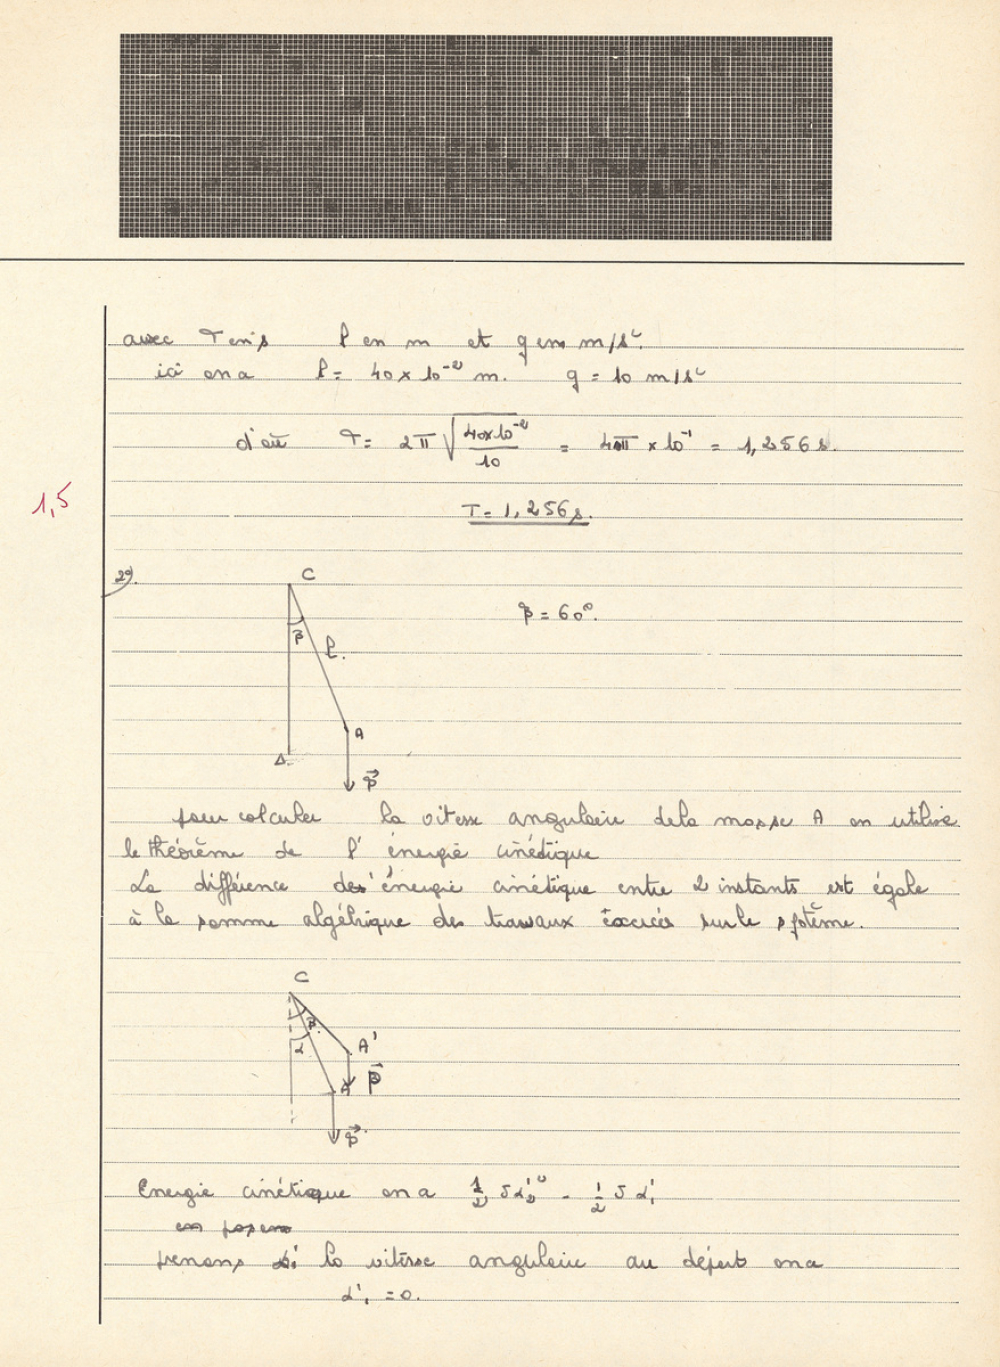 avec T en s l en m et g en m/s²
ici on a l = 40 x 10⁻² m. g = 10 m/s²
d'où T = 2π √(40x10⁻²/10) = 4π x 10⁻¹ = 1,256 s.
1,5
T = 1,256 s.
2°)
C
β = 60°.
β
l.
A
Δ
P⃗
pour calculer la vitesse angulaire de la masse A on utilise
le théorème de l'énergie cinétique
La différence des énergie cinétique entre 2 instants est égale
à la somme algébrique des travaux exercés sur le système.
C
β
α
A'
P⃗
A
P⃗
Energie cinétique on a 1/2 J α'₂² - 1/2 J α'₁
en posen
prenons la vitesse angulaire au départ on a
α'₁ = 0.